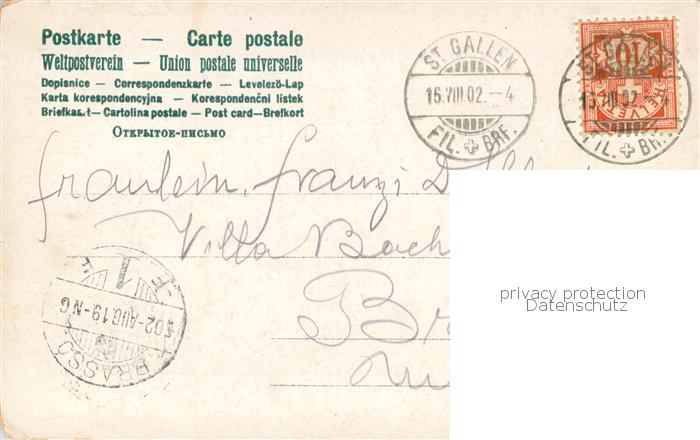 Postkarte — Carte postale
Weltpostverein — Union postale universelle
Dopisnice — Correspondenzkarte — Levelező-Lap
Karta korespondencyjna — Korespondenční listek
Briefkaart — Cartolina postale — Post card — Brefkort
Открытое-письмо
ST GALLEN
15.VIII.02.–4
FIL. + BRF.
10
HELVETIA
FIL. + BRF.
Fräulein Franzi
Villa Bach
BRASSÓ
902-AUG.19-N6
1
privacy protection
Datenschutz